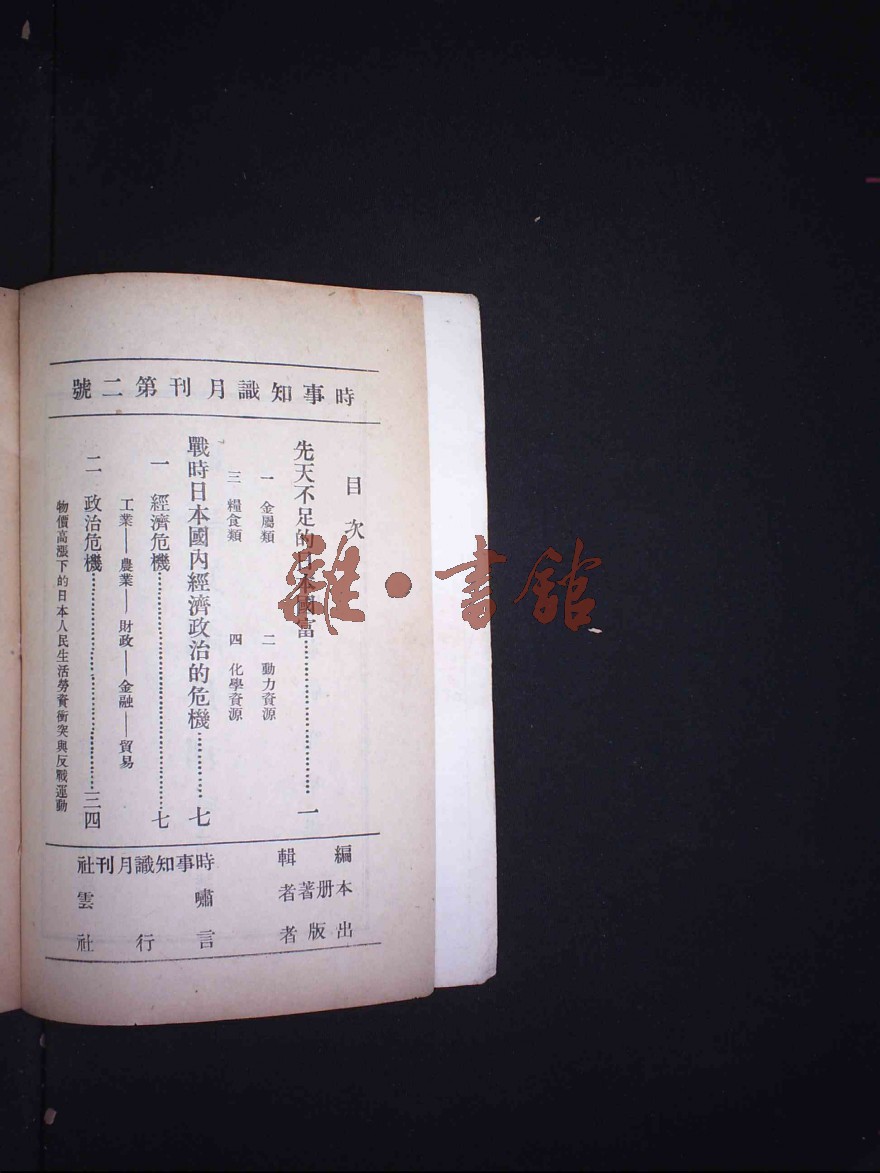 時事知識月刊第二號
目次
先天不足的日本國富……………………一
一 金屬類 二 動力資源
三 糧食類 四 化學資源
戰時日本國內經濟政治的危機…………七
一 經濟危機……………………七
工業——農業——財政——金融——貿易
二 政治危機……………………三四
物價高漲下的日本人民生活勞資衝突與反戰運動
編輯 時事知識月刊社
本册著者 嘯雲
出版者 言行社
雜·書館